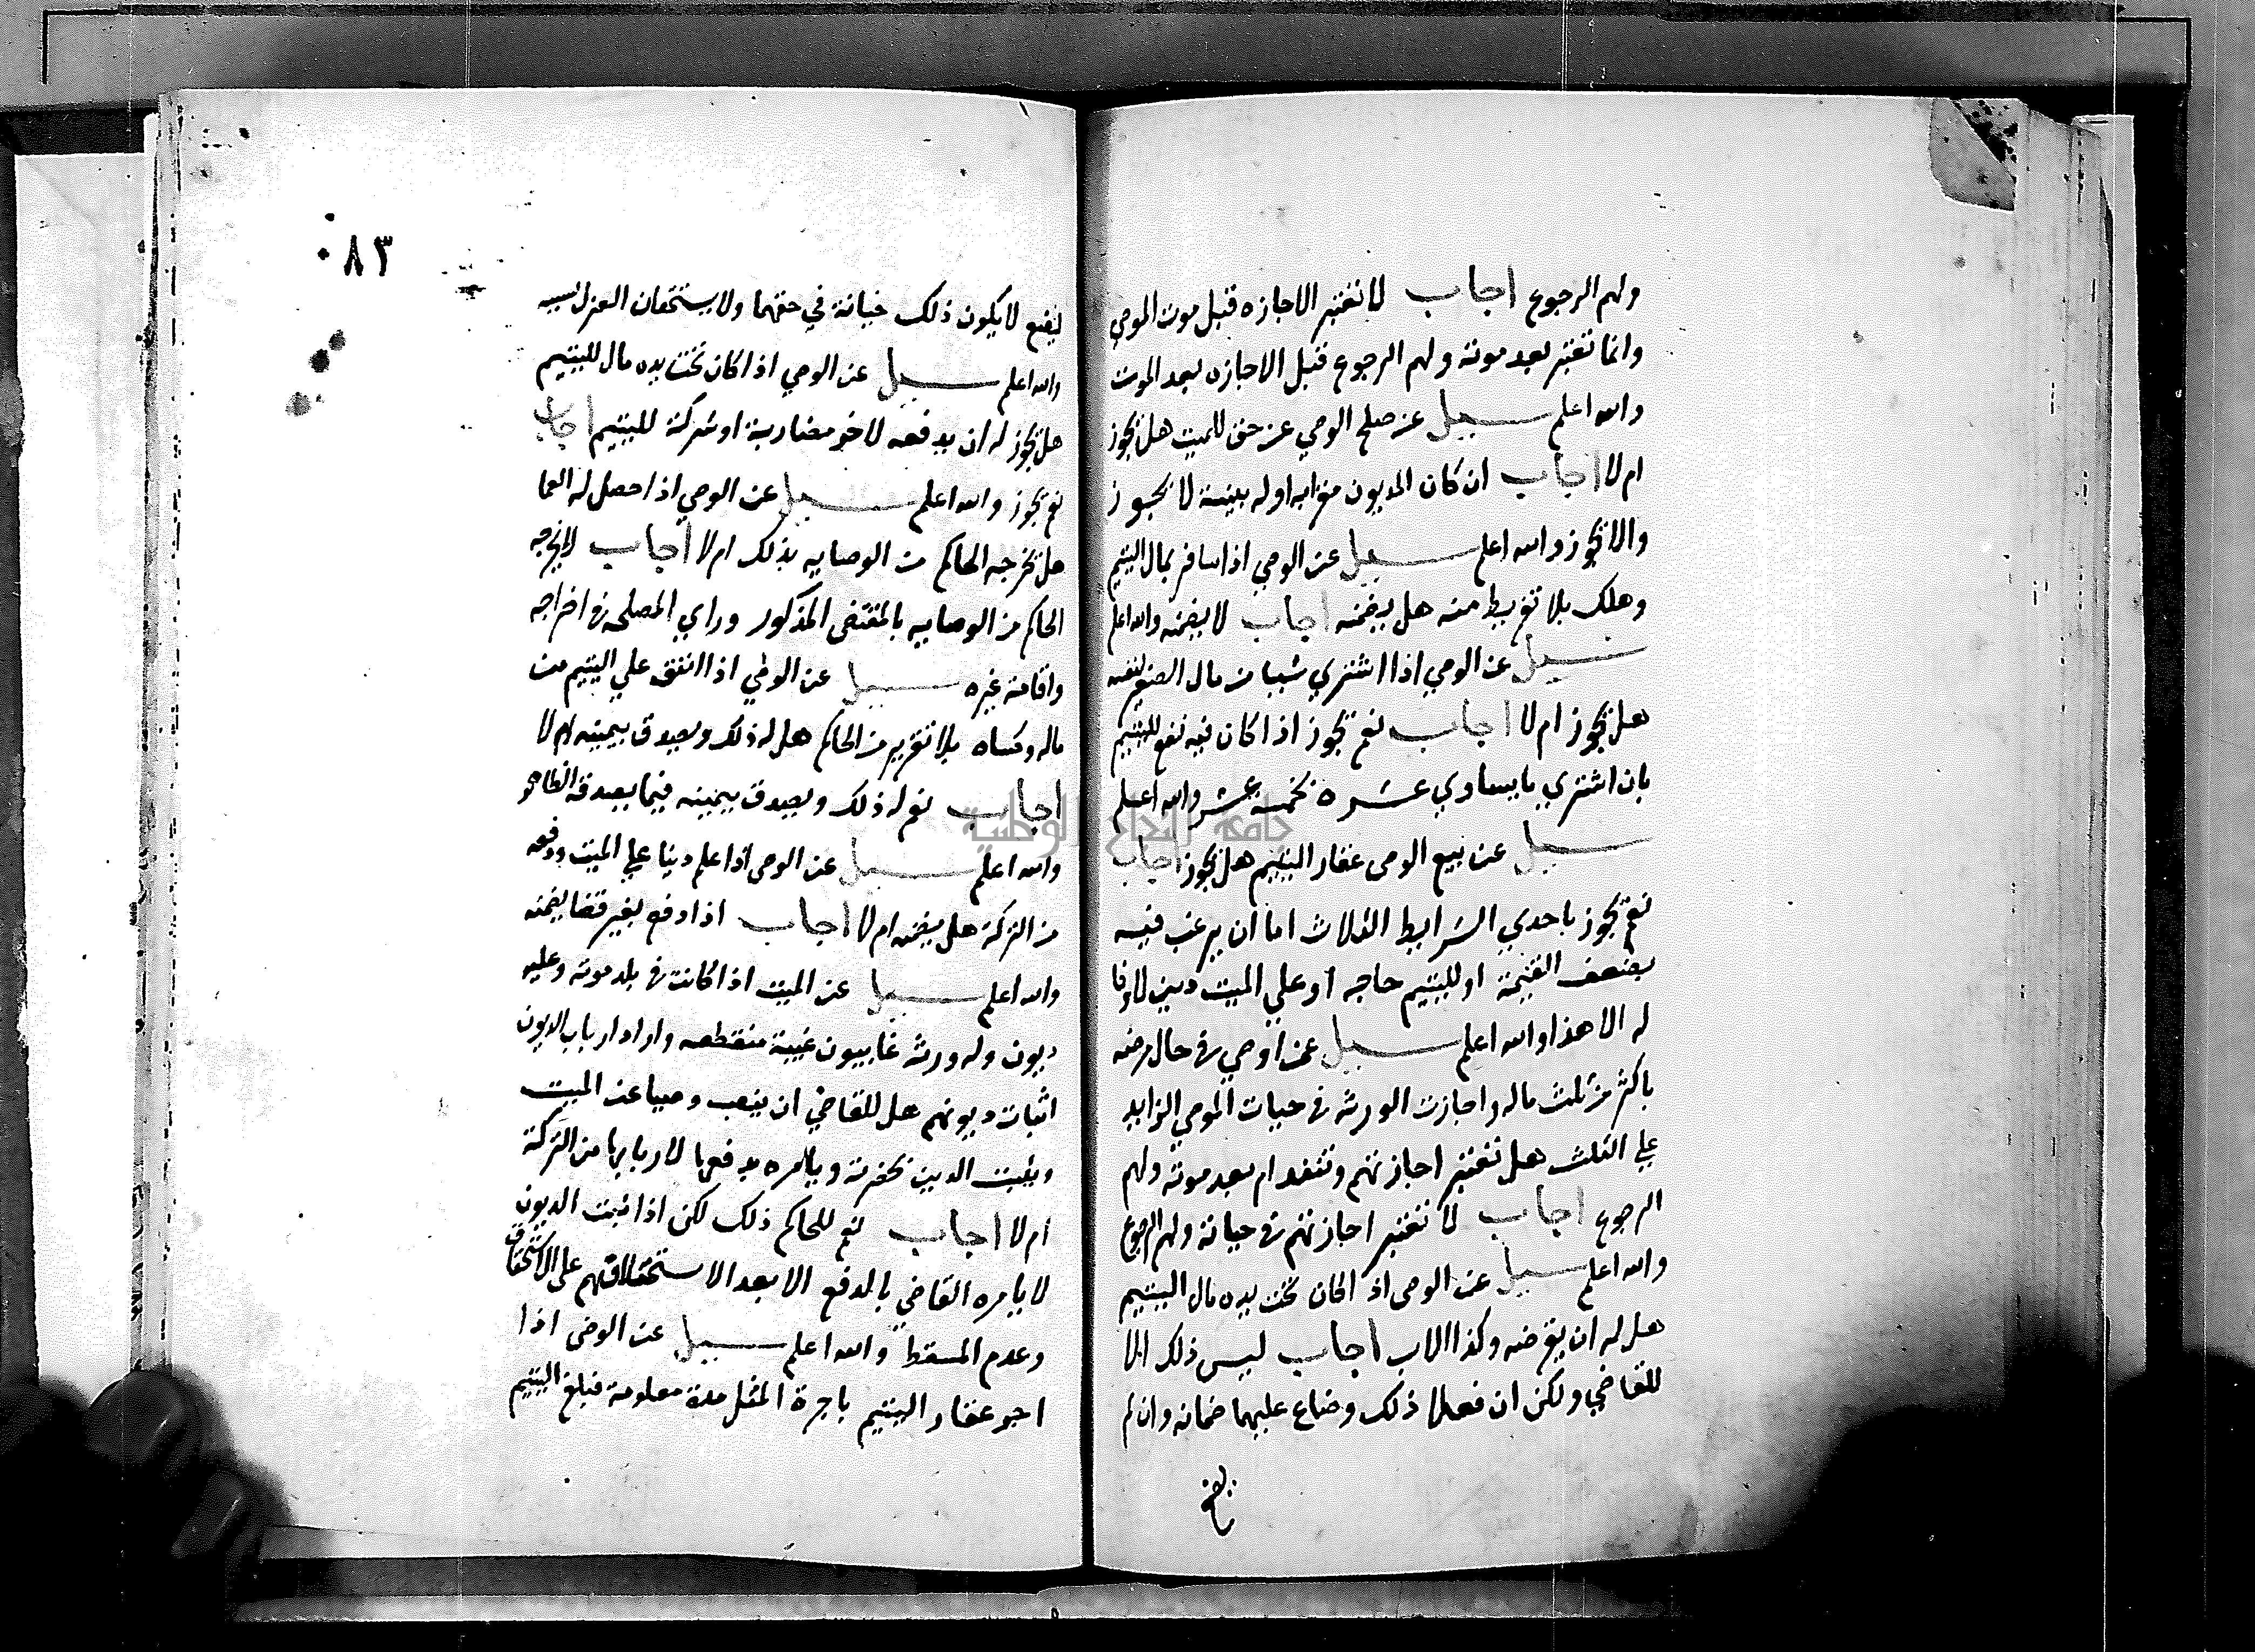 ولهم الرجوع اجاب لا تعتبر الاجازه قبل موت الموصي
وانما تعتبر بعد موته ولهم الرجوع قبل الاجازه بعد الموت
والله اعلم سيل عن صلح الوصي عن حق للميت هل يجوز
ام لا اجاب ان كان المديون مقرا به اوله بينة لا يجوز
والا يجوز والله اعلم سيل عن الوصي اذا سافر بمال اليتيم
وهلك بلا تفريط منه هل يضمنه اجاب لا يضمنه والله اعلم
سيل عن الوصي اذا اشتري شييا من مال لنفسه
هل يجوز ام لا اجاب نعم يجوز اذا كان فيه نفع لليتيم
بان اشتري ما يساوي عشره بخمسة عشر والله اعلم
سيل عن بيع الوصي عقار اليتيم هل يجوز اجاب
نعم يجوز باحدي الشرايط الثلاث اما ان يرغب فيه
بضعف القيمة او لليتيم حاجه او علي الميت دين لا وفا
له الا هذا والله اعلم سيل عمن اوصي في حال مرضه
باكثر من ثلث ماله واجازت الورثه في حيات الموصي الزايد
علي الثلث هل تعتبر اجازتهم وتنفد ام بعد موته ولهم
الرجوع اجاب لا تعتبر اجازتهم في حياته ولهم الرجوع
والله اعلم سيل عن الوصي اذ الكان تحت يده مال اليتيم
هل له ان يقرضه وكذا الاب اجاب ليس ذلك الا
للقاضي ولكن ان فعلا ذلك وضاع عليهما ضمانه وان لم
يضع
٠٨٣
يضع لا يكون ذلك خيانة في حقهما ولا يستحقان العزل بسببه
والله اعلم سيل عن الوصي اذا كان تحت يده مال لليتيم
هل يجوز له ان يدفعه لاخر مضاربة او شركة لليتيم اجاب
نعم يجوز والله اعلم سيل عن الوصي اذا حصل له العما
هل يخرجه الحاكم من الوصايه بذلك ام لا اجاب لا يخرجه
الحاكم من الوصايه بالمقتضى المذكور وراي المصلحه في اخراجه
واقامة غيره سيل عن الوصي اذا انفق علي اليتيم من
ماله وكساه بلا تقرير من الحاكم هل له ذلك ويصدق بيمينه ام لا
اجاب نعم له ذلك ويصدق بيمينه فيما يصدقه الظاهر
والله اعلم سيل عن الوصي اذا علم دينا علي الميت ودفعه
من التركة هل يضمنه ام لا اجاب اذا دفع بغير قضا يضمنه
والله اعلم سيل عن الميت اذا كانت في بلد موته وعليه
ديون وله ورثه غاييون غيبة منقطعه واراد ارباب الديون
اثبات ديونهم هل للقاضي ان ينصب وصيا عن الميت
ويثبت الدين بحضرته ويامره بدفعها لاربابها من التركة
ام لا اجاب نعم للحاكم ذلك لكن اذا ثبت الديون
لا يامره القاضي بالدفع الا بعد الاستحلافهم علي الاستحقاق
وعدم المسقط والله اعلم سيل عن الوصي اذا
اجر عقار اليتيم باجرة المثل مدة معلومة فبلغ اليتيم